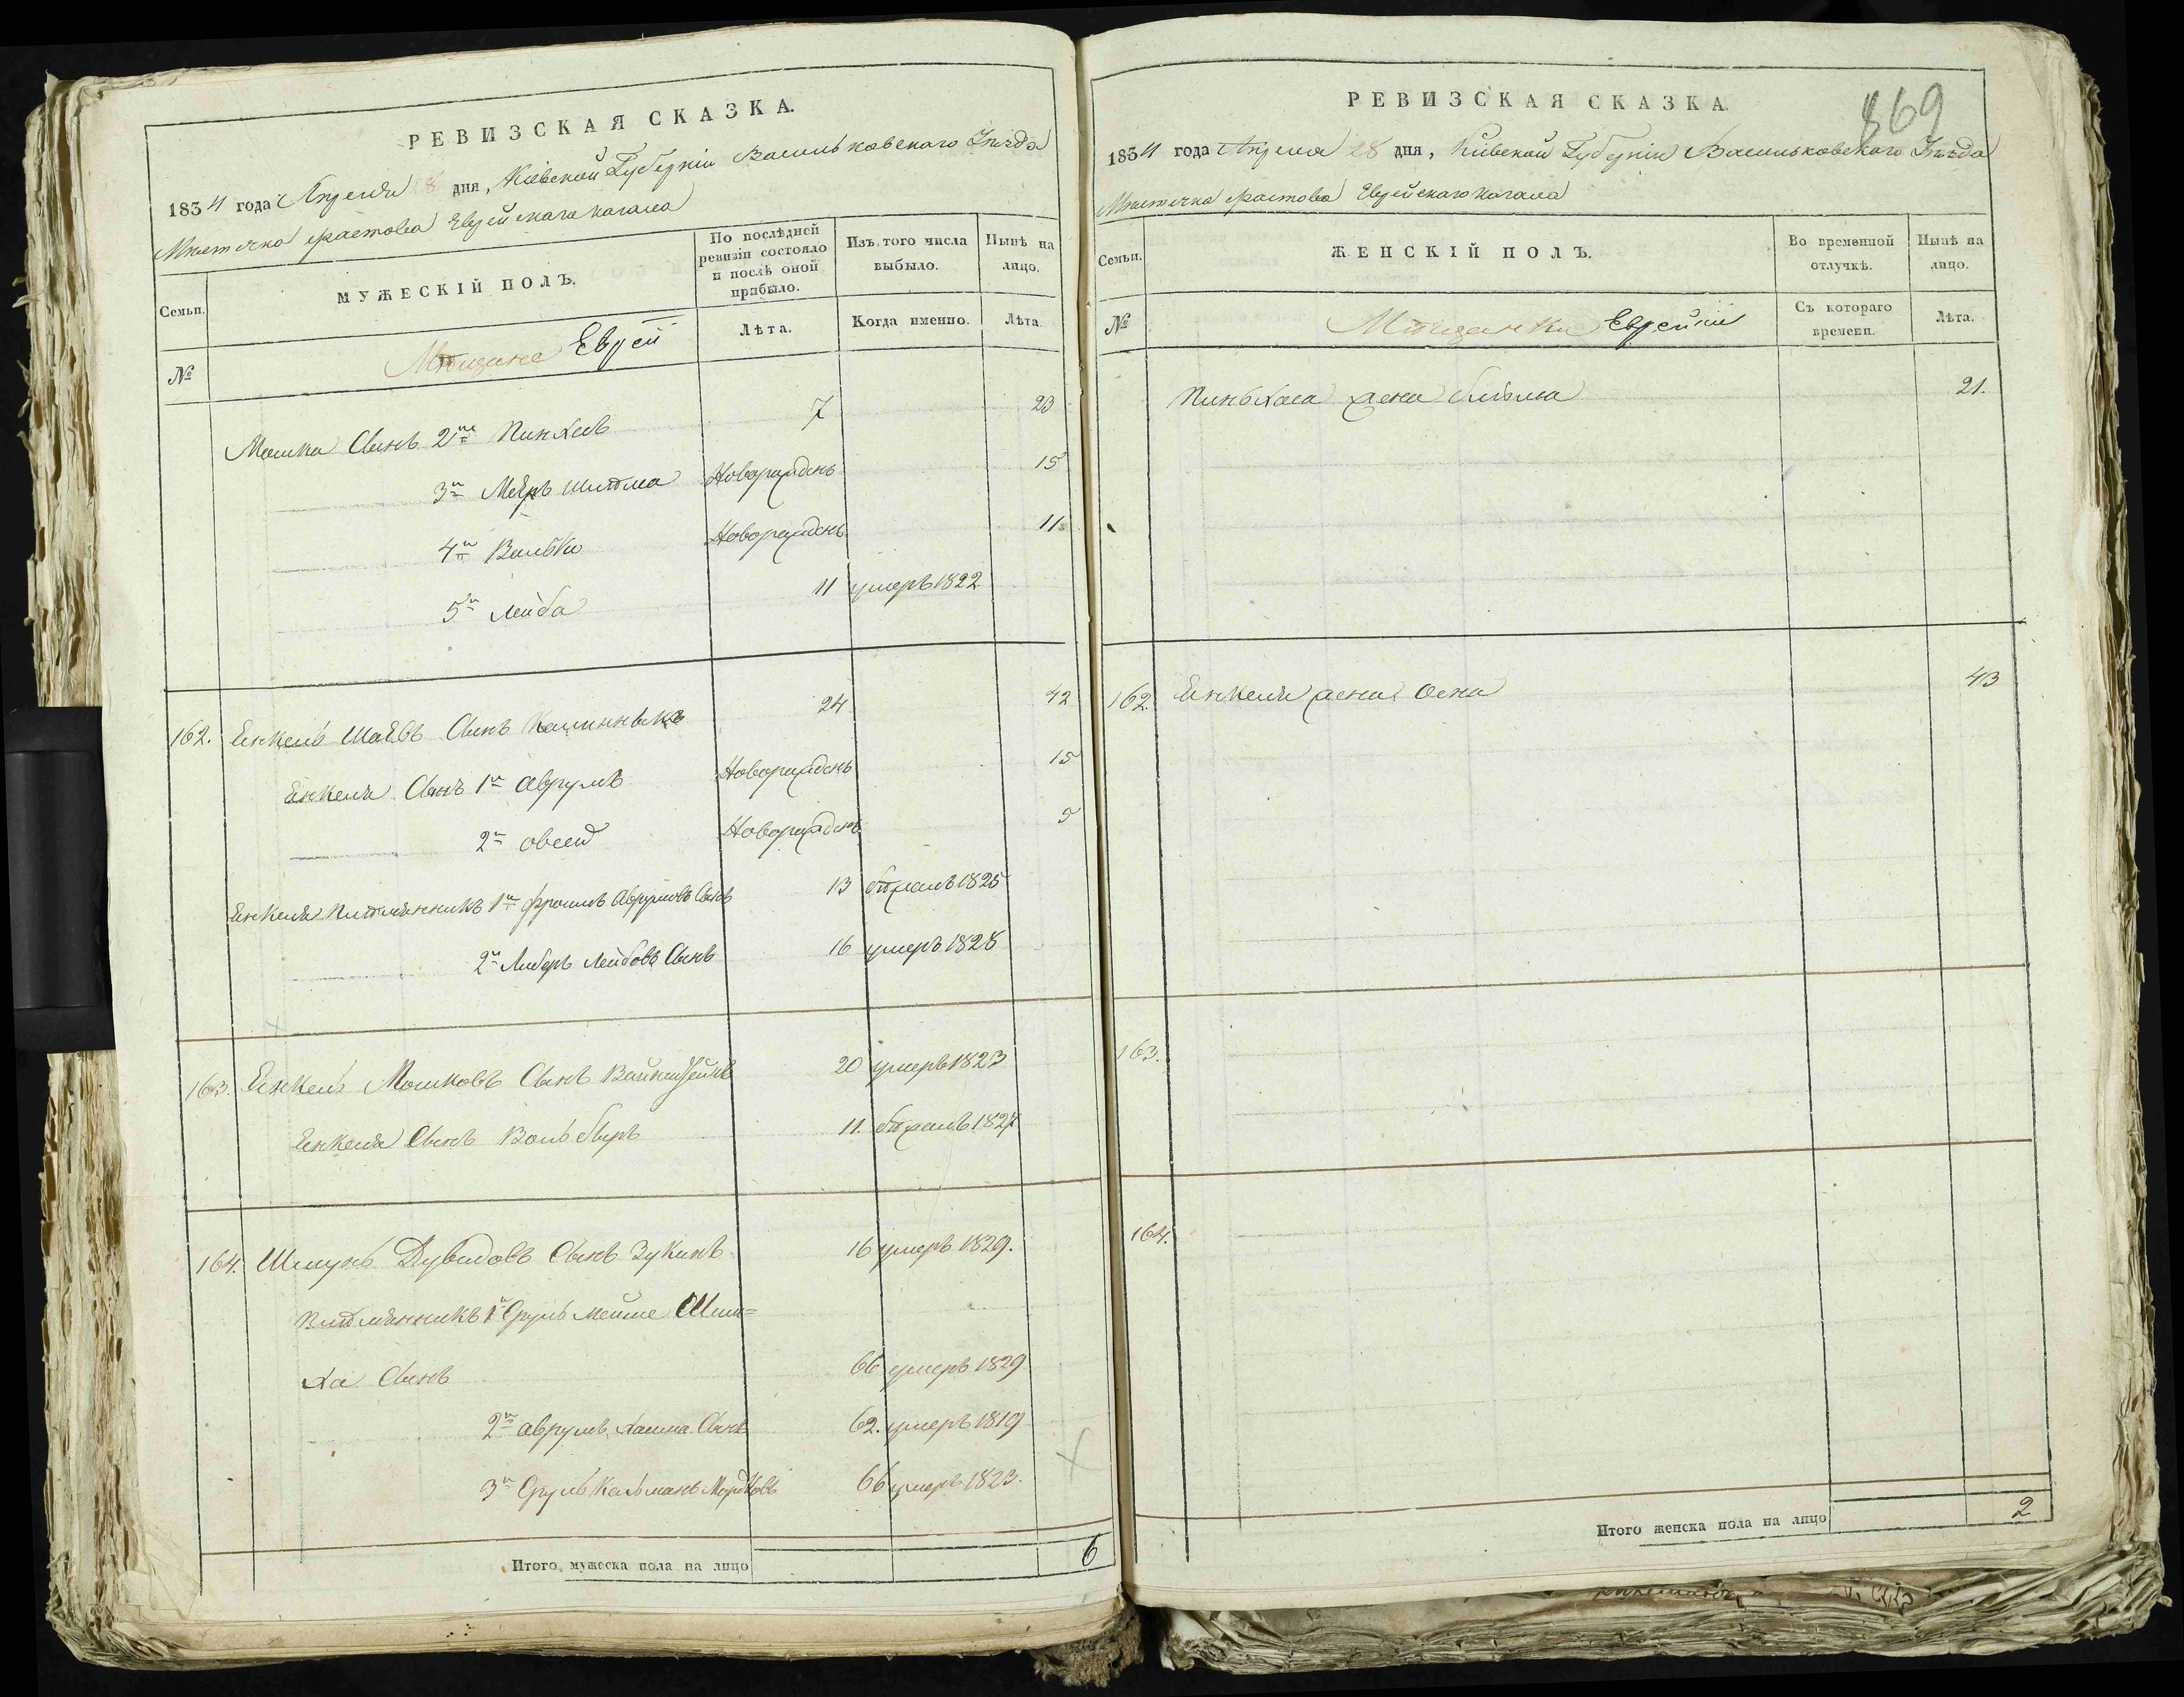 РЕВИЗСКАЯ СКАЗКА.
1834 года Апреля 28 дня, Кіевской Губерніи Васильковскаго Уѣзда
Мѣстечка Фастова Еврейскаго кагала
Семьи.
МУЖЕСКІЙ ПОЛЪ.
По послѣдней ревизіи состояло и послѣ оной прибыло.
Изъ того числа выбыло.
Нынѣ на лицо.
№
Мѣщане Евреи
Лѣта.
Когда именно.
Лѣта
Мошка Сынъ 2й Пинхасъ 7 23
3й Меѣръ Шлѣма Новорожденъ 15
4й Волько Новорожденъ 11
5й Лейба 11 умеръ 1822
162. Енкель Шаевъ Сынъ 24 42
Енкеля Сынъ 1й Аврумъ Новорожденъ 15
2й Овсей Новорожденъ 5
Енкеля Племѣнникъ 1й Фроимъ Аврумовъ Сынъ 13 бѣжалъ 1825
2й Либеръ Лейбовъ Сынъ 16 умеръ 1828
163. Енкель Мошковъ Сынъ Вайнштейнъ 20 умеръ 1823
Енкеля Сынъ Вольберъ 11. бѣжалъ 1827
164. Шмуль Дувидовъ Сынъ Зукинъ 16 умеръ 1829.
Племѣнникъ 1й Сруль Мейше Сим=
ха Сынъ 66 умеръ 1829
2й Аврумъ Хаима Сынъ 62. умеръ 1819
3й Сруль Кальманъ Мордковъ 66 умеръ 1823.
Итого мужеска пола на лицо 6
РЕВИЗСКАЯ СКАЗКА.
869
1834 года Апреля 28 дня, Кіевской Губерніи Васильковскаго Уѣзда
Мѣстечка Фастова Еврейскаго кагала
Семьи.
ЖЕНСКІЙ ПОЛЪ.
Во временной отлучкѣ.
Нынѣ на лицо.
№
Мѣщанки Еврейки
Съ котораго времени.
Лѣта.
Пиньхаса жена 21.
162. Енкеля жена Осна 43
163.
164.
Итого женска пола на лицо 2